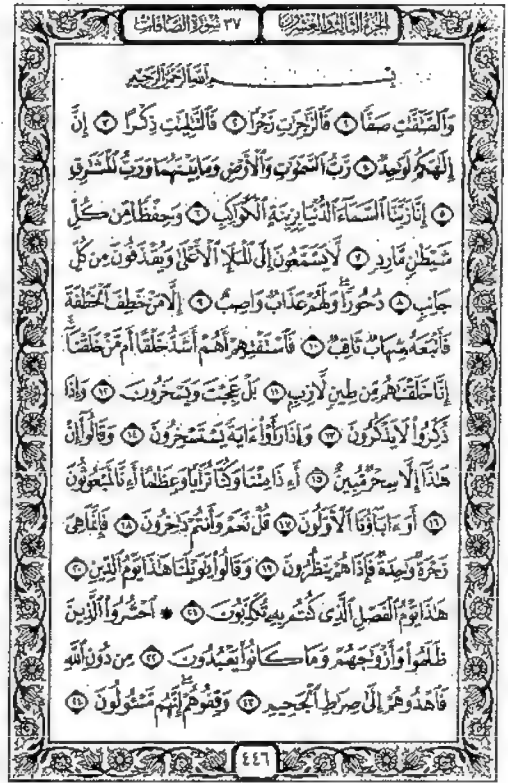 الجزء الثالث والعشرون ٣٧ سورة الصافات
بِسْمِ ٱللَّهِ ٱلرَّحْمَٰنِ ٱلرَّحِيمِ
وَٱلصَّٰٓفَّٰتِ صَفًّا ١ فَٱلزَّٰجِرَٰتِ زَجْرًا ٢ فَٱلتَّٰلِيَٰتِ ذِكْرًا ٣ إِنَّ
إِلَٰهَكُمْ لَوَٰحِدٌ ٤ رَّبُّ ٱلسَّمَٰوَٰتِ وَٱلْأَرْضِ وَمَا بَيْنَهُمَا وَرَبُّ ٱلْمَشَٰرِقِ
٥ إِنَّا زَيَّنَّا ٱلسَّمَآءَ ٱلدُّنْيَا بِزِينَةٍ ٱلْكَوَاكِبِ ٦ وَحِفْظًا مِّن كُلِّ
شَيْطَٰنٍ مَّارِدٍ ٧ لَّا يَسَّمَّعُونَ إِلَى ٱلْمَلَإِ ٱلْأَعْلَىٰ وَيُقْذَفُونَ مِن كُلِّ
جَانِبٍ ٨ دُحُورًا ۖ وَلَهُمْ عَذَابٌ وَاصِبٌ ٩ إِلَّا مَنْ خَطِفَ ٱلْخَطْفَةَ
فَأَتْبَعَهُۥ شِهَابٌ ثَاقِبٌ ١٠ فَٱسْتَفْتِهِمْ أَهُمْ أَشَدُّ خَلْقًا أَم مَّنْ خَلَقْنَآ ۚ
إِنَّا خَلَقْنَٰهُم مِّن طِينٍ لَّازِبٍۭ ١١ بَلْ عَجِبْتَ وَيَسْخَرُونَ ١٢ وَإِذَا
ذُكِّرُوا۟ لَا يَذْكُرُونَ ١٣ وَإِذَا رَأَوْا۟ ءَايَةً يَسْتَسْخِرُونَ ١٤ وَقَالُوٓا۟ إِنْ
هَٰذَآ إِلَّا سِحْرٌ مُّبِينٌ ١٥ أَءِذَا مِتْنَا وَكُنَّا تُرَابًا وَعِظَٰمًا أَءِنَّا لَمَبْعُوثُونَ
١٦ أَوَءَابَآؤُنَا ٱلْأَوَّلُونَ ١٧ قُلْ نَعَمْ وَأَنتُمْ دَٰخِرُونَ ١٨ فَإِنَّمَا هِىَ
زَجْرَةٌ وَٰحِدَةٌ فَإِذَا هُمْ يَنظُرُونَ ١٩ وَقَالُوا۟ يَٰوَيْلَنَا هَٰذَا يَوْمُ ٱلدِّينِ ٢٠
هَٰذَا يَوْمُ ٱلْفَصْلِ ٱلَّذِى كُنتُم بِهِۦ تُكَذِّبُونَ ٢١ ۞ ٱحْشُرُوا۟ ٱلَّذِينَ
ظَلَمُوا۟ وَأَزْوَٰجَهُمْ وَمَا كَانُوا۟ يَعْبُدُونَ ٢٢ مِن دُونِ ٱللَّهِ
فَٱهْدُوهُمْ إِلَىٰ صِرَٰطِ ٱلْجَحِيمِ ٢٣ وَقِفُوهُمْ ۖ إِنَّهُم مَّسْـُٔولُونَ ٢٤
٤٤٦